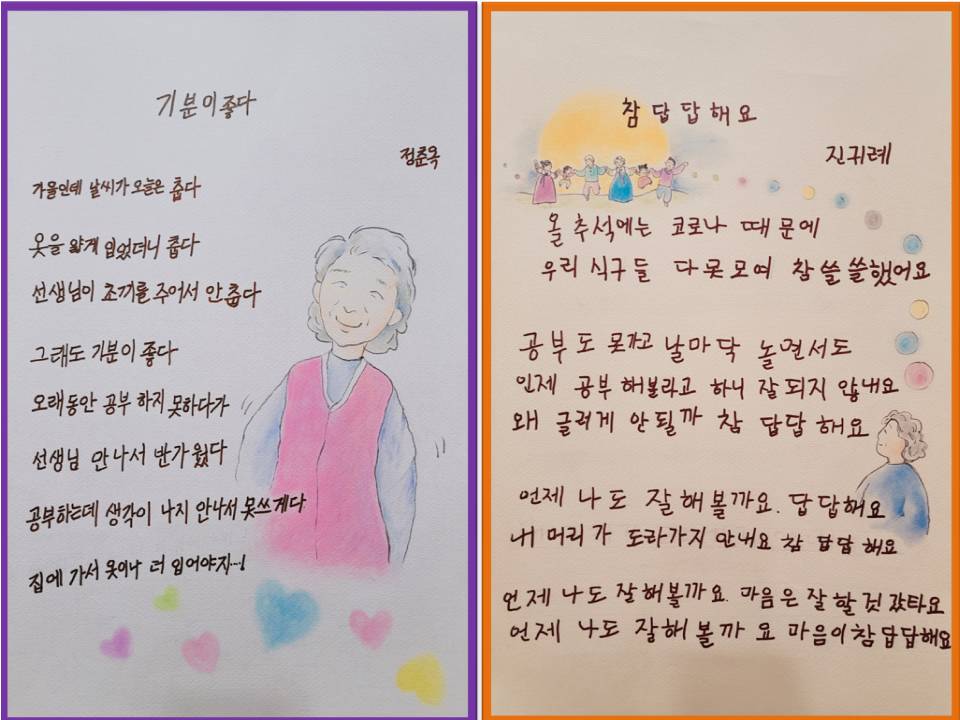 기분이좋다
정춘옥
가을인데 날씨가 오늘은 춥다
옷을 얇게 입었더니 춥다
선생님이 조끼를 주어서 안춥다
그래도 기분이 좋다
오래동안 공부 하지 못하다가
선생님 만나서 반가웠다
공부하는데 생각이 나지 안나서 못쓰게다
집에 가서 옷이나 더 입어야지…!
참 답답해요
진귀례
올 추석에는 코로나 때문에
우리 식구들 다못모여 참 쓸쓸했어요
공부도 못가고 날마닥 놀면서도
인제 공부 해볼라고 하니 잘되지 않내요
왜 글러게 안될까 참 답답 해요
언제 나도 잘해볼까요. 답답해요
내 머리가 도라가지 안내요 참 답답 해요
언제 나도 잘해볼까요. 마음은 잘 할것 갔타요
언제 나도 잘해 볼까 요 마음이참답답해요